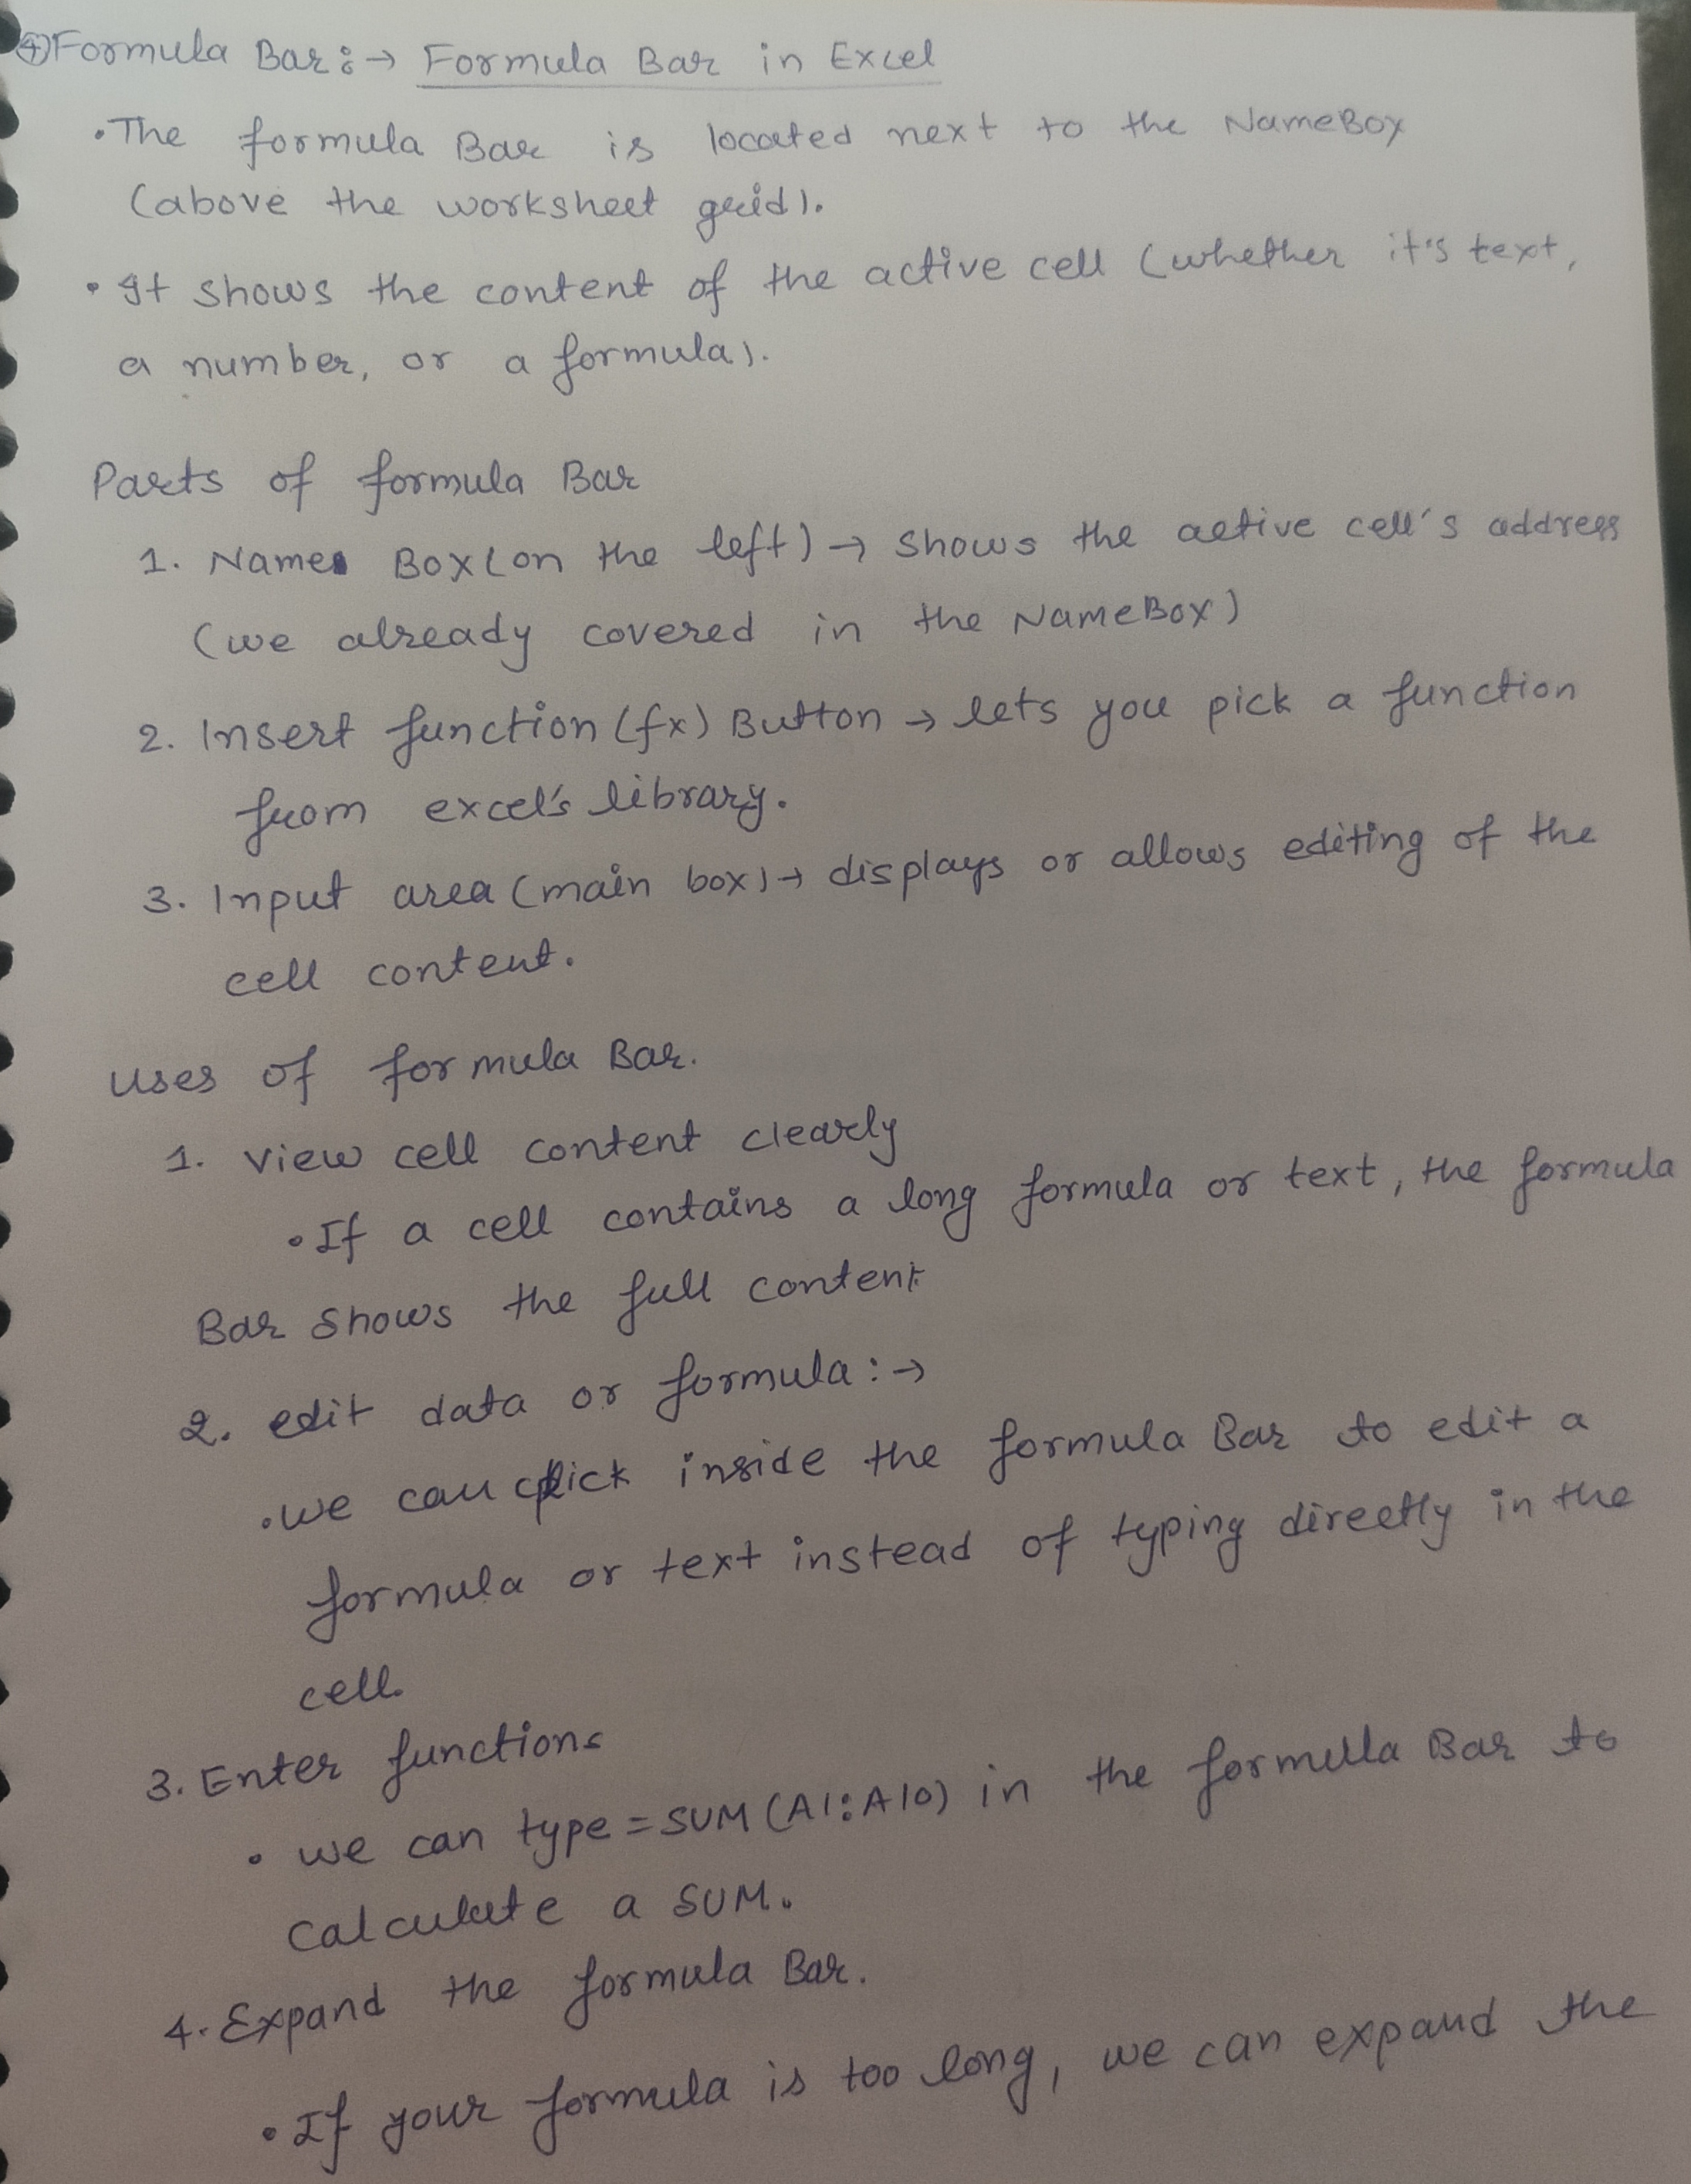 ④Formula Bar:→ Formula Bar in Excel
•The formula Bar is located next to the NameBox
(above the worksheet grid).
•It shows the content of the active cell (whether it's text,
a number, or a formula).
Parts of formula Bar
1. Name Box(on the left)→ shows the active cell's address
(we already covered in the NameBox)
2. Insert function (fx) Button → lets you pick a function
from excel's library.
3. Input area (main box)→ displays or allows editing of the
cell content.
Uses of formula Bar.
1. View cell content clearly
•If a cell contains a long formula or text, the formula
Bar shows the full content
2. edit data or formula:→
•we can click inside the formula Bar to edit a
formula or text instead of typing directly in the
cell.
3. Enter functions
• we can type =SUM(A1:A10) in the formula Bar to
calculate a SUM.
4. Expand the formula Bar.
•If your formula is too long, we can expand the